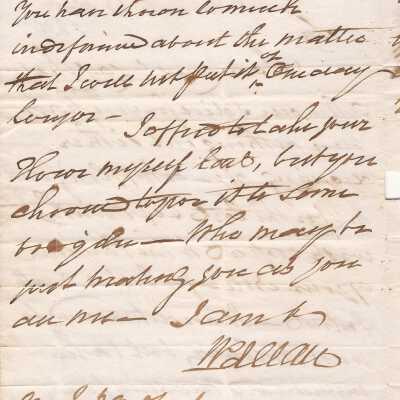 You have shown so much
indifference about the matter
that I will not put it off One day
longer –
I offered to take your
House myself last, but you
choose to give it to some
– Who may be
just making you as you
are me – I am &